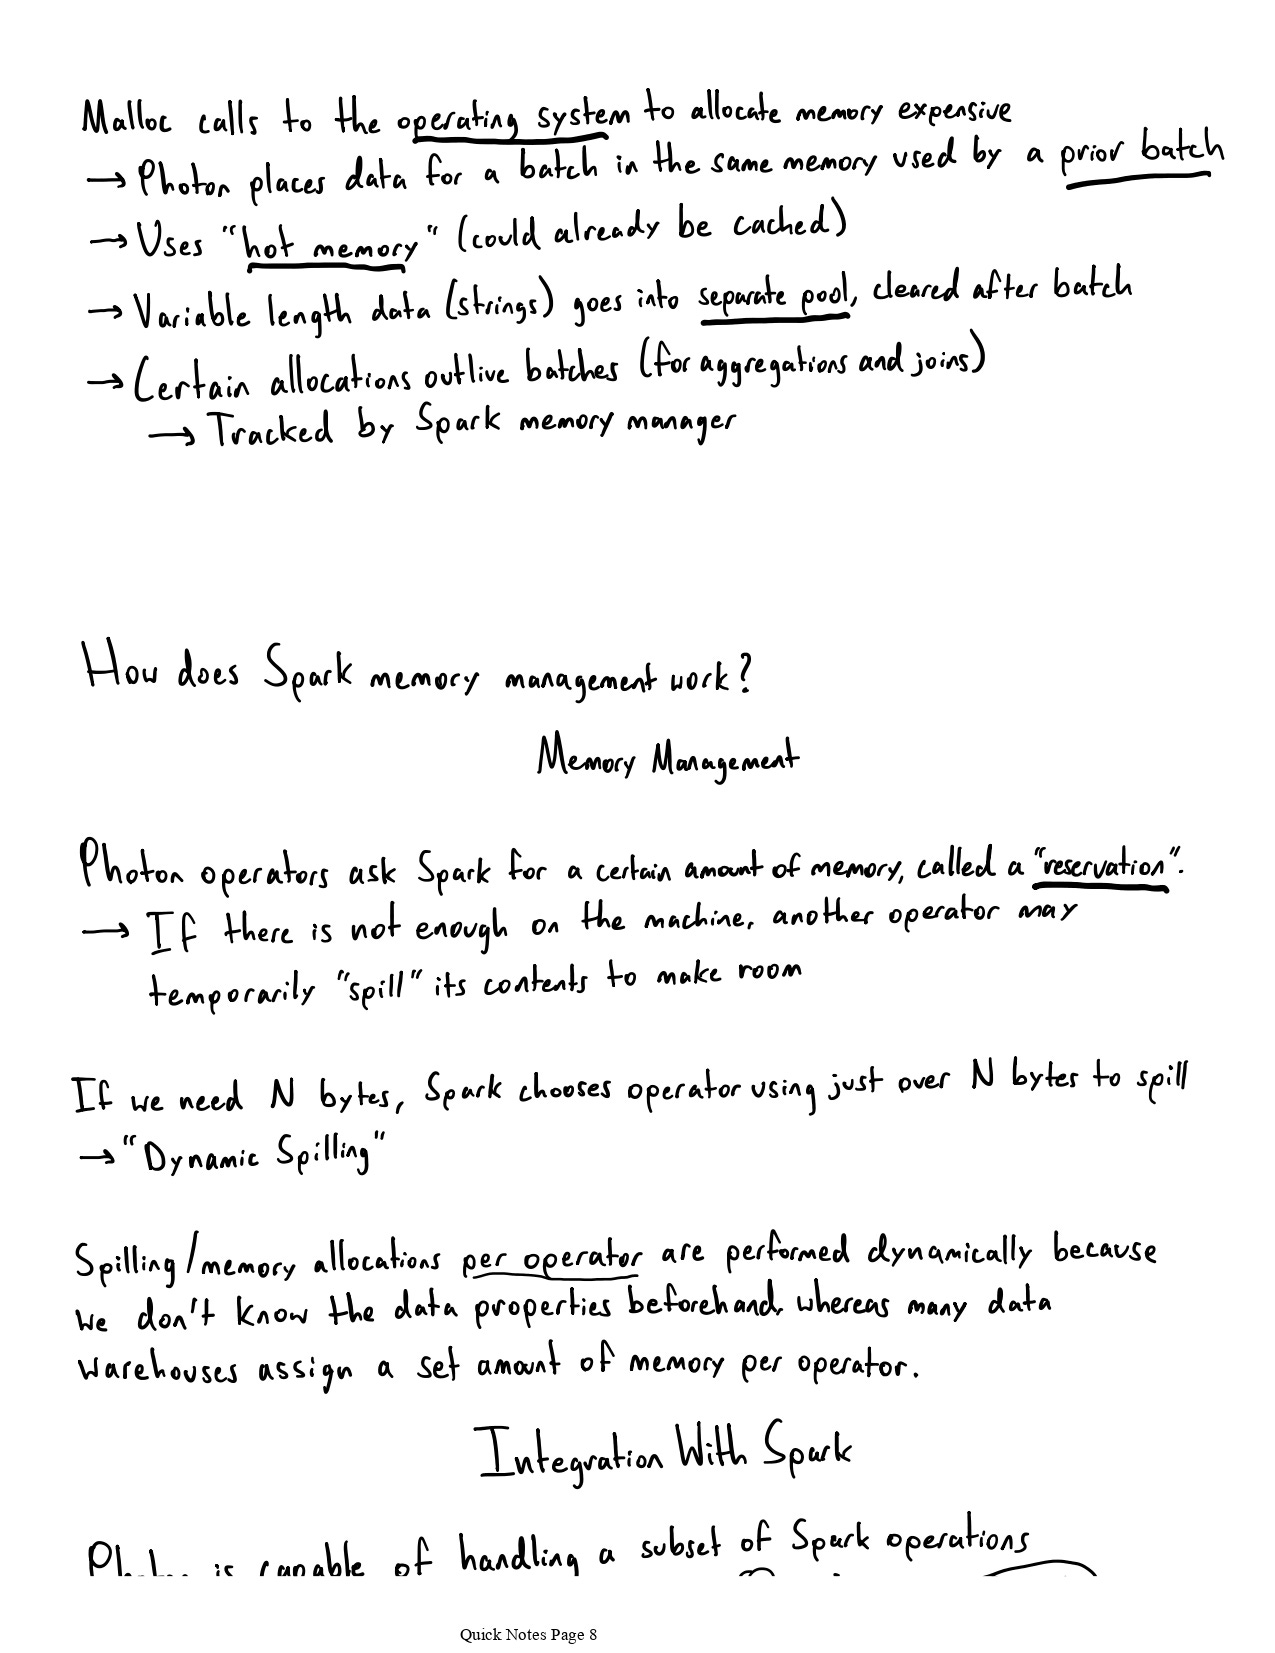 Malloc calls to the operating system to allocate memory expensive
→ Photon places data for a batch in the same memory used by a prior batch
→ Uses "hot memory" (could already be cached)
→ Variable length data (strings) goes into separate pool, cleared after batch
→ Certain allocations outlive batches (for aggregations and joins)
→ Tracked by Spark memory manager
How does Spark memory management work?
Memory Management
Photon operators ask Spark for a certain amount of memory, called a "reservation".
→ If there is not enough on the machine, another operator may
temporarily "spill" its contents to make room
If we need N bytes, Spark chooses operator using just over N bytes to spill
→ "Dynamic Spilling"
Spilling/memory allocations per operator are performed dynamically because
we don't know the data properties beforehand, whereas many data
warehouses assign a set amount of memory per operator.
Integration With Spark
Photon is capable of handling a subset of Spark operations
Quick Notes Page 8